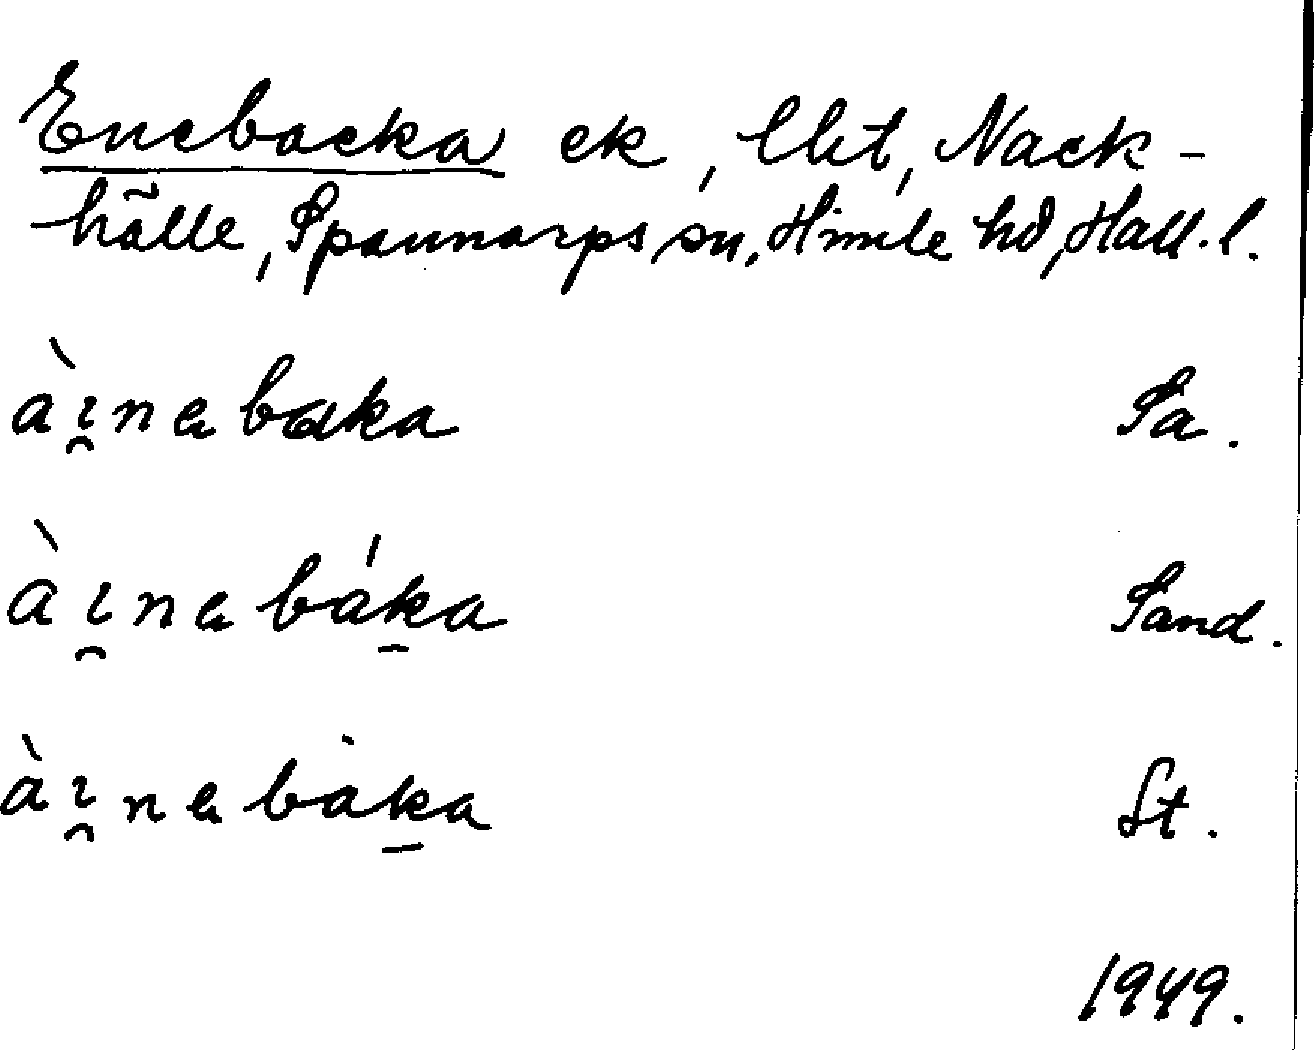 Enebacka ek, lht, Nack-
hälle, Spannarps sn, Himle hd, Hall. l.
àı̯nɐbaka Sa.
àı̯nɐbák̠a Sand.
àı̯nɐbàk̠a St.
1949.